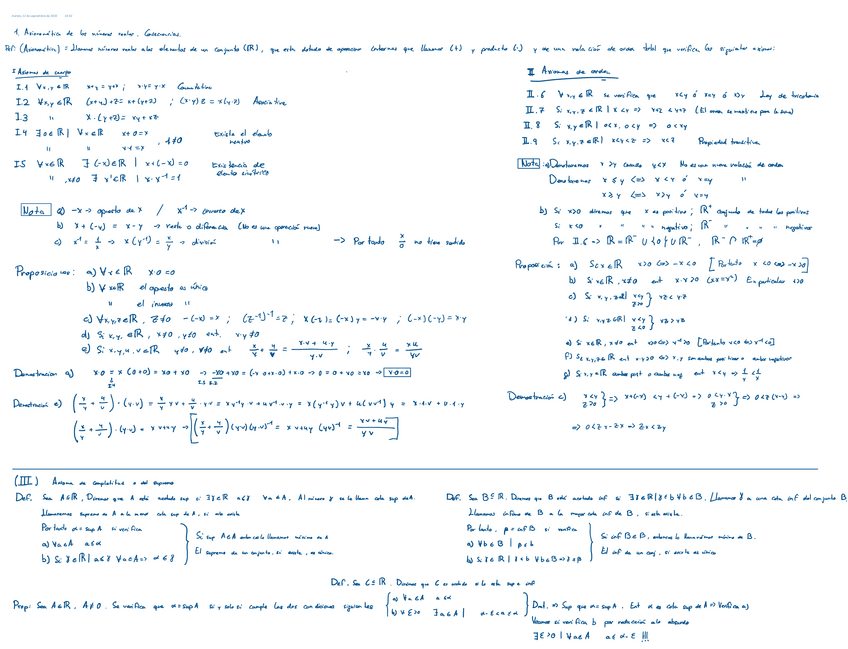 1. Axiomática de los números reales. Consecuencias.
Def: (Axiomática) = Llamamos números reales a los elementos de un conjunto (ℝ), que está dotado de operaciones internas que llamamos (+) y producto (·) y de una relación de orden total que verifica los siguientes axiomas:
I Axiomas de cuerpo
I.1 ∀x,y∈ℝ x+y=y+x ; x·y=y·x Conmutativa
I.2 ∀x,y∈ℝ (x+y)+z=x+(y+z) ; (x·y)z=x(y·z) Asociativa
I.3 " x·(y+z)=xy+xz
I.4 ∃0∈ℝ | ∀x∈ℝ x+0=x
" " x·1=x , 1≠0
Existe el elemento neutro
I.5 ∀x∈ℝ ∃(-x)∈ℝ | x+(-x)=0
" , x≠0 ∃x'∈ℝ | x·x⁻¹=1
Existencia de elemento simétrico
Nota a) -x → opuesto de x / x⁻¹ → inverso de x
b) x+(-y)=x-y → resta o diferencia (No es una operación nueva)
c) x⁻¹=1/x → x(y⁻¹)=x/y → división " → Por tanto x/0 no tiene sentido
Proposiciones: a) ∀x∈ℝ x·0=0
b) ∀x∈ℝ el opuesto es único
" el inverso "
c) ∀x,y,z∈ℝ, z≠0 -(-x)=x ; (z⁻¹)⁻¹=z ; x(-y)=(-x)y=-x·y ; (-x)(-y)=x·y
d) Si x,y∈ℝ, x≠0, y≠0 ent. x·y≠0
e) Si x,y,u,v∈ℝ y≠0, v≠0 ent x/y+u/v=(x·v+u·y)/(y·v) ; x/y·u/v=xu/yv
Demostración a) x·0=x(0+0)=x0+x0 → -x0+x0=(-x0+x0)+x·0 → 0=0+x0=x0 → x0=0
Demostración e) (x/y+u/v)·(y·v)=x/y yv+u/v·yv=xy⁻¹yv+uv⁻¹·v·y=x(y⁻¹y)v+u(vv⁻¹)y=x·1·v+u·1·y
(x/y+u/v)·(y·v)=xv+uy → [(x/y+u/v)(yv)(y·v)⁻¹=xv+uy(yv)⁻¹=(xv+uy)/yv]
II Axiomas de orden
II.6 ∀x,y∈ℝ se verifica que x<y ó x=y ó x>y Ley de tricotomía
II.7 Si x,y,z∈ℝ | x<y ⇒ x+z<y+z (El orden se mantiene por la suma)
II.8 Si x,y∈ℝ | 0<x, 0<y ⇒ 0<xy
II.9 Si x,y,z∈ℝ | x<y<z ⇒ x<z Propiedad transitiva
Nota: a) Denotaremos x>y cuando y<x No es una nueva relación de orden
Denotaremos x≤y ⟺ x<y ó x=y "
x≥y ⟺ x>y ó x=y
b) Si x>0 diremos que x es positivo ; ℝ⁺ conjunto de todos los positivos
Si x<0 " " " negativo ; ℝ⁻ " " " negativos
Por II.6 ⇒ ℝ=ℝ⁻∪{0}∪ℝ⁺, ℝ⁻∩ℝ⁺=∅
Proposición: a) Si x∈ℝ x>0 ⟺ -x<0 [Por tanto x<0 ⟺ -x>0]
b) Si x∈ℝ, x≠0 ent x·x>0 (xx=x²) En particular 1>0
c) Si x,y,z∈ℝ x<y z>0 } xz<yz
d) Si x,y,z∈ℝ | x<y z<0 } xz>yz
e) Si x∈ℝ, x≠0 ent x>0 ⟺ x⁻¹>0 [Por tanto x<0 ⟺ x⁻¹<0]
f) Si x,y∈ℝ ent x·y>0 ⟺ x,y son ambos positivos o ambos negativos
g) Si x,y∈ℝ ambos posit o ambos neg ent x<y ⇒ 1/y<1/x
Demostración c) x<y z>0 } ⇒ x+(-x)<y+(-x) ⇒ 0<y-x z>0 } ⇒ 0<z(y-x) ⇒
⇒ 0<zy-zx ⇒ zx<zy
(III) Axioma de completitud o del supremo
Def. Sea A⊆ℝ, Diremos que A está acotado sup si ∃γ∈ℝ a≤γ ∀a∈A, Al número γ se le llama cota sup de A.
Llamaremos supremo de A a la menor cota sup de A, si esta existe
Por tanto α=sup A si verifica
a) ∀a∈A a≤α
b) Si γ∈ℝ | a≤γ ∀a∈A ⇒ α≤γ
Si sup A∈A entonces lo llamamos máximo de A
El supremo de un conjunto, si existe, es único.
Def. Sea B⊆ℝ. Diremos que B está acotado inf si ∃γ∈ℝ | γ≤b ∀b∈B, Llamamos γ a una cota inf del conjunto B.
Llamamos ínfimo de B a la mayor cota inf de B, si esta existe.
Por tanto, β=inf B si verifica
a) ∀b∈B | β≤b
b) Si γ∈ℝ | γ≤b ∀b∈B ⇒ γ≤β
Si inf B∈B, entonces lo llamaremos mínimo de B.
El inf de un conj, si existe es único
Def. Sea C⊆ℝ. Diremos que C es acotado si lo está sup e inf
Prop: Sea A⊆ℝ, A≠∅. Se verifica que α=sup A si y solo si cumple las dos condiciones siguientes
a) ∀a∈A a≤α
b) ∀ε>0 ∃a∈A | α-ε<a≤α
Dem. ⇒ Sup que α=sup A. Ent α es cota sup de A ⇒ Verifica a)
Veamos si verifica b por reducción al absurdo
∃ε>0 | ∀a∈A a≤α-ε !!!